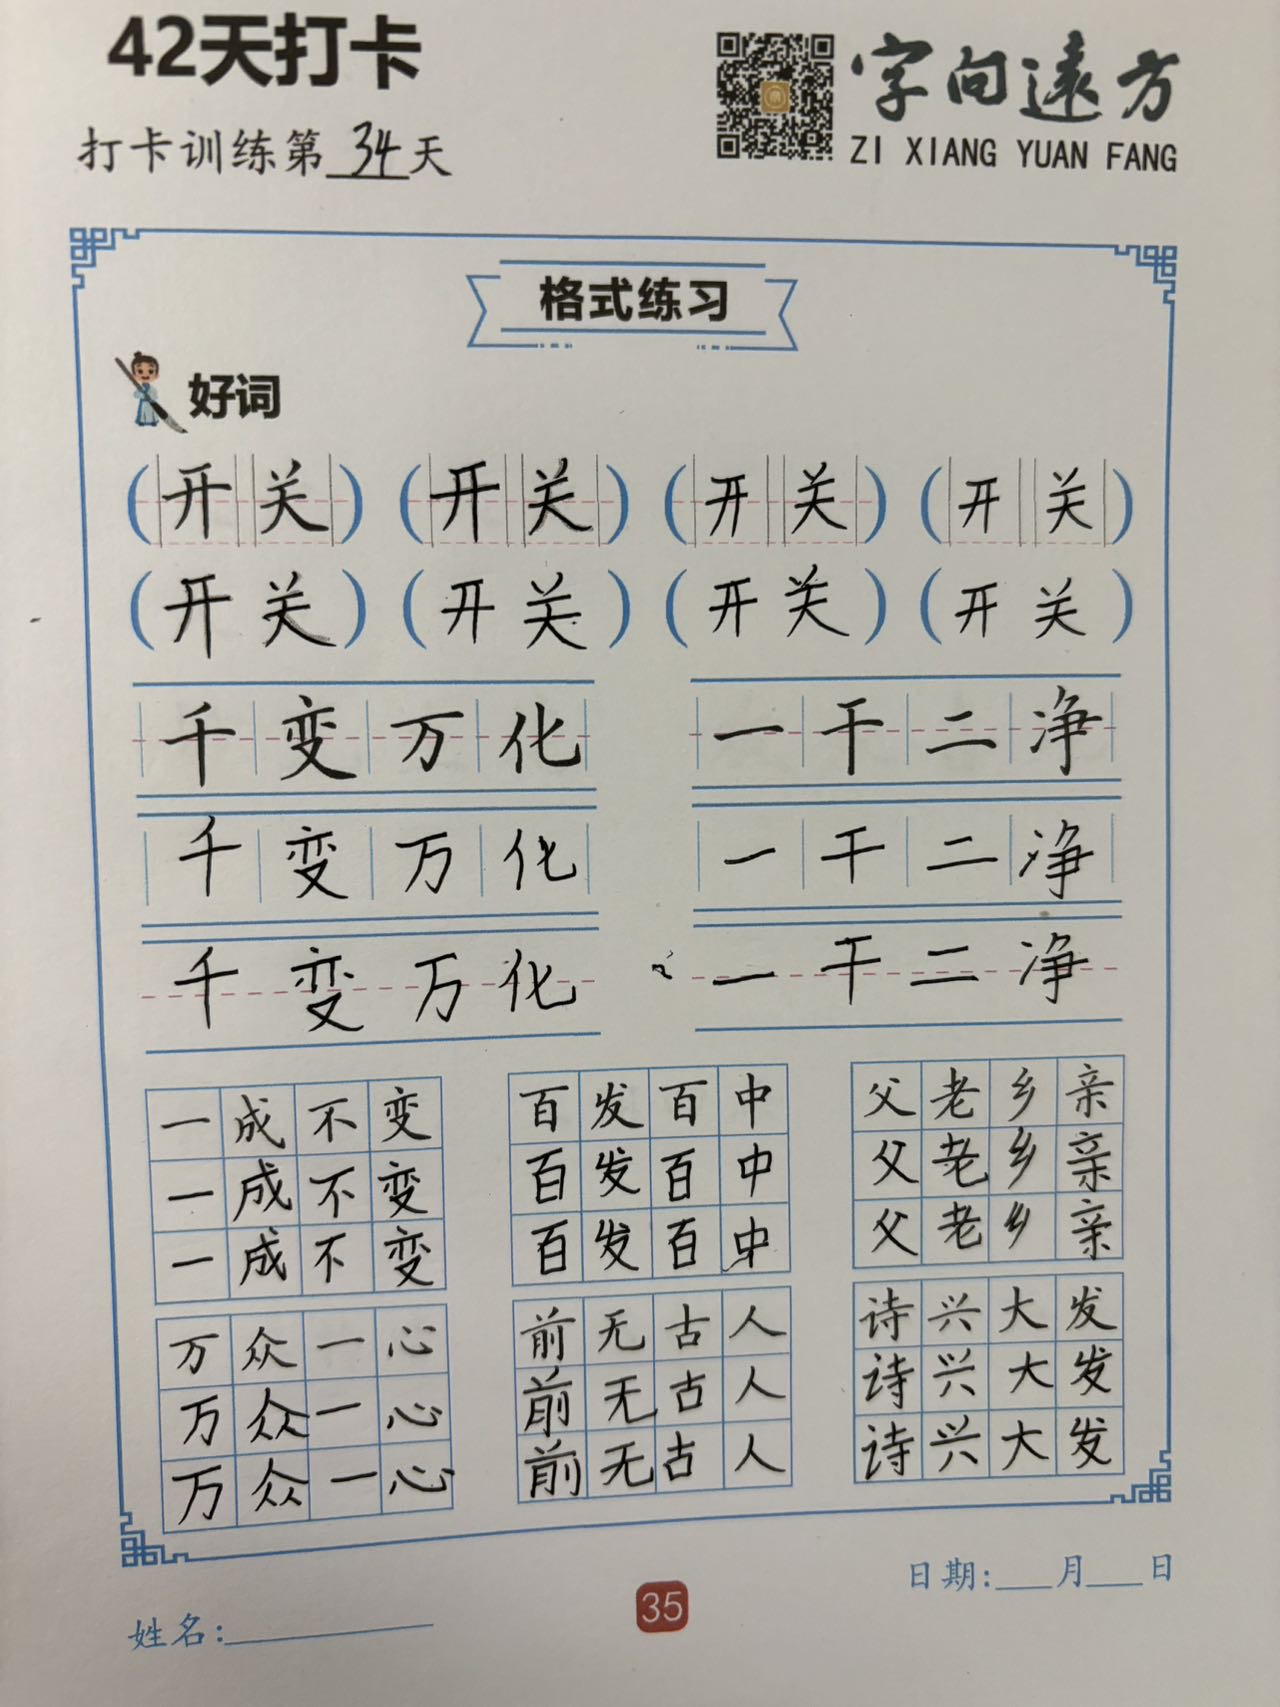 42天打卡
字向遠方
打卡训练第34天
ZI XIANG YUAN FANG
格式练习
好词
(开关) (开关) (开关) (开关)
(开关) (开关) (开关) (开关)
千变万化 一干二净
千变万化 一干二净
千变万化 一干二净
一成不变 百发百中 父老乡亲
一成不变 百发百中 父老乡亲
一成不变 百发百中 父老乡亲
万众一心 前无古人 诗兴大发
万众一心 前无古人 诗兴大发
万众一心 前无古人 诗兴大发
日期:___月___日
姓名:__________
35